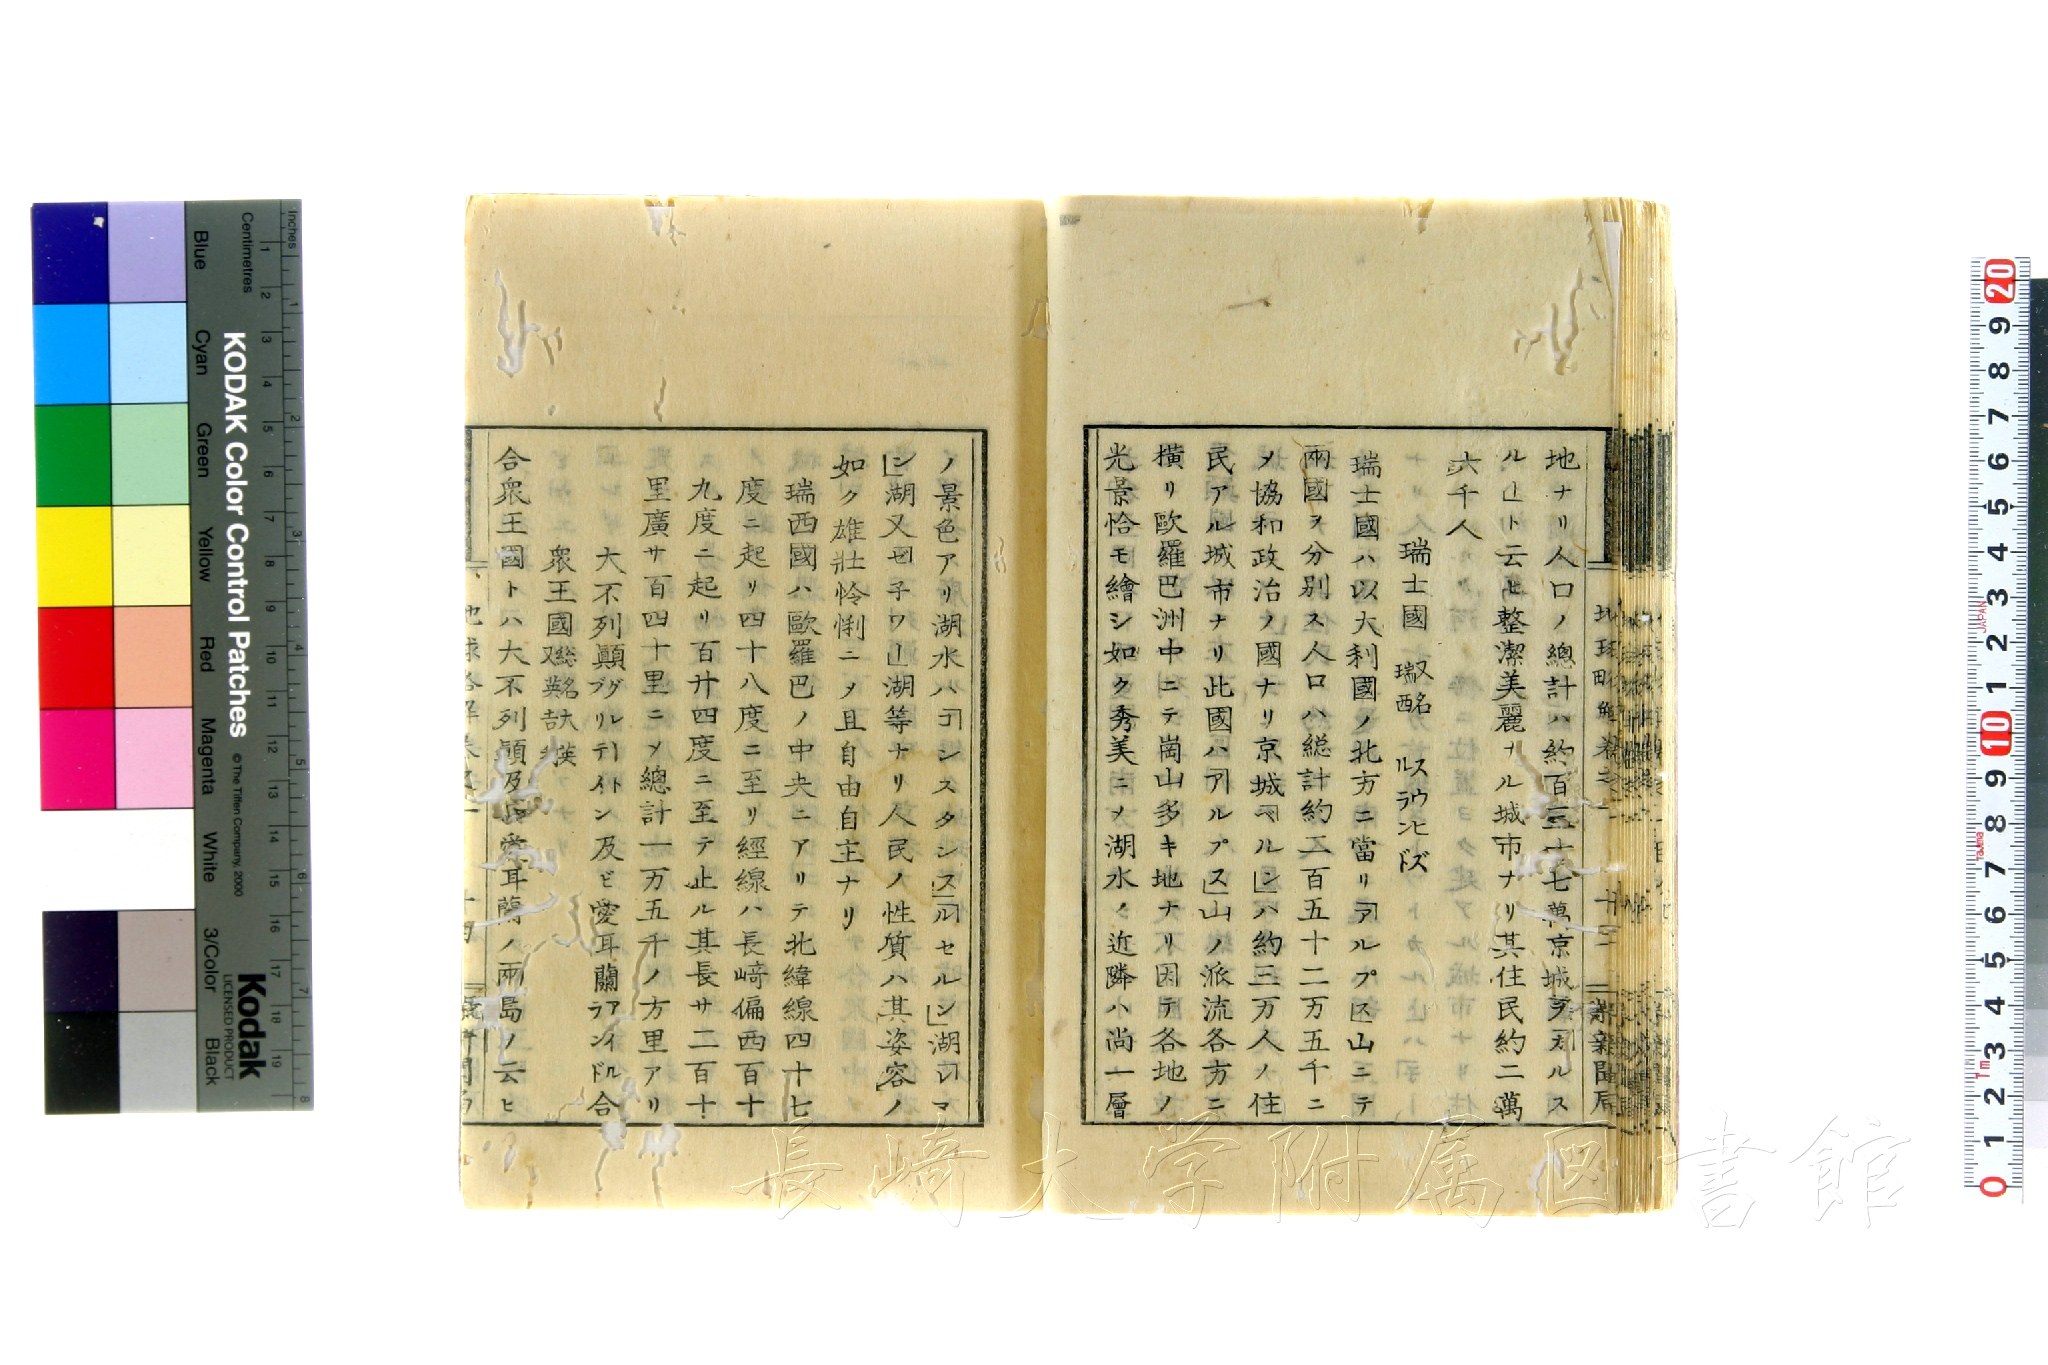 地ナリ人口ノ總計ハ約百三十七萬京城ヲ「ブルス
ル」ト云ヒ整潔美麗ナル城市ナリ其住民約二萬
六千人
瑞士國 又名瑞西 スウヒズルランド
瑞士國ハ以大利國ノ北方ニ當リ「アルプス」山ニテ
兩國ヲ分別ス人口ハ総計約二百五十二万五千ニ
ノ協和政治ノ國ナリ京城「ベルン」ハ約三万人ノ住
民アル城市ナリ此國ハ「アルプス」山ノ派流各方ニ
横リ歐羅巴洲中ニテ崗山多キ地ナリ因テ各地ノ
光景恰モ繪シ如ク秀美ニメ湖水ノ近隣ハ尚一層
地球略解巻之一
新聞局
ノ景色アリ湖水ハ「コンスタンス」「ルセルン」湖「レマ
ン」湖又「ゼ子ワ」湖等ナリ人民ノ性質ハ其姿容ノ
如ク雄壯怜悧ニメ且自由自主ナリ
瑞西國ハ歐羅巴ノ中央ニアリテ北緯線四十七
度ニ起リ四十八度ニ至リ經線ハ長崎偏西百十
九度ニ起リ百廿四度ニ至テ止ル其長サ二百十
里廣サ百四十里ニメ總計一万五千ノ方里アリ
大不列顛 グレートブリテイン 及ビ愛耳蘭 アイルランド 合
眾王國
合眾王國トハ大不列顛及ビ愛耳蘭ノ兩島ノ云ヒ
KODAK Color Control Patches
© The Tiffen Company, 2000
Kodak
LICENSED PRODUCT
Inches
Centimetres
Blue
Cyan
Green
Yellow
Red
Magenta
White
3/Color
Black
長崎大学附属図書館